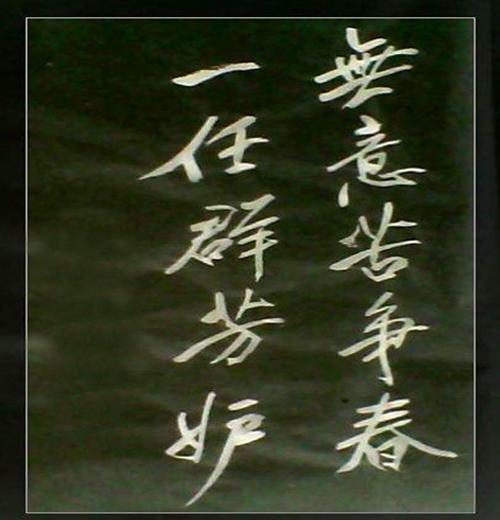 無意苦争春
一任群芳妒